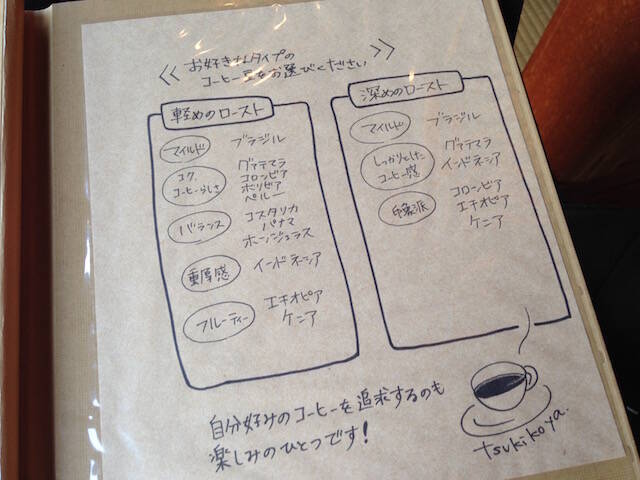 お好きなタイプの
コーヒー豆をお選びください
軽めのロースト
マイルド
ブラジル
コク、
コーヒーらしさ
グァテマラ
コロンビア
ボリビア
ペルー
バランス
コスタリカ
パナマ
ホンジュラス
重厚感
インドネシア
フルーティー
エチオピア
ケニア
深めのロースト
マイルド
ブラジル
しっかりとした
コーヒー感
グァテマラ
インドネシア
印象派
コロンビア
エチオピア
ケニア
自分好みのコーヒーを追求するのも
楽しみのひとつです！
tsukikoya.